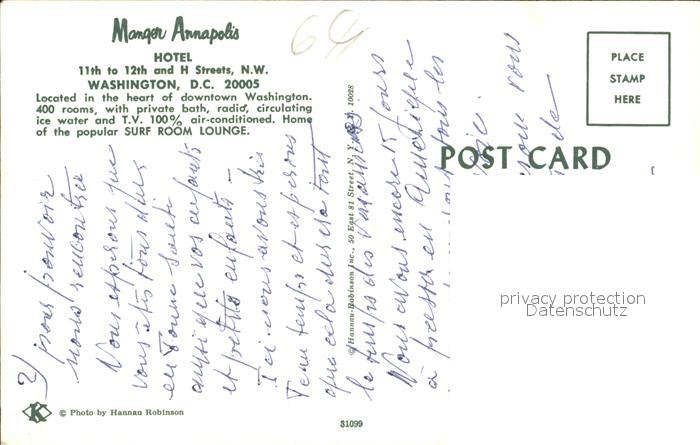 Manger Annapolis
HOTEL
11th to 12th and H Streets, N.W.
WASHINGTON, D.C. 20005
Located in the heart of downtown Washington.
400 rooms, with private bath, radio, circulating
ice water and T.V. 100% air-conditioned. Home
of the popular SURF ROOM LOUNGE.
64
PLACE
STAMP
HERE
POST CARD
2) pour pouvoir
nous rencontrer
Nous espérons que
vous êtes tous deux
en bonne santé
ainsi que vos enfants
et petits enfants -
Ici nous avons très
beau temps et espérons
que cela durera tout
le temps des vacances
Nous avons encore 15 jours
à passer en Amérique
tous les
nous vous
de
© Hannau-Robinson Inc., 50 East 81 Street, N. Y., N. Y. 10028
privacy protection
Datenschutz
K
© Photo by Hannau Robinson
31099